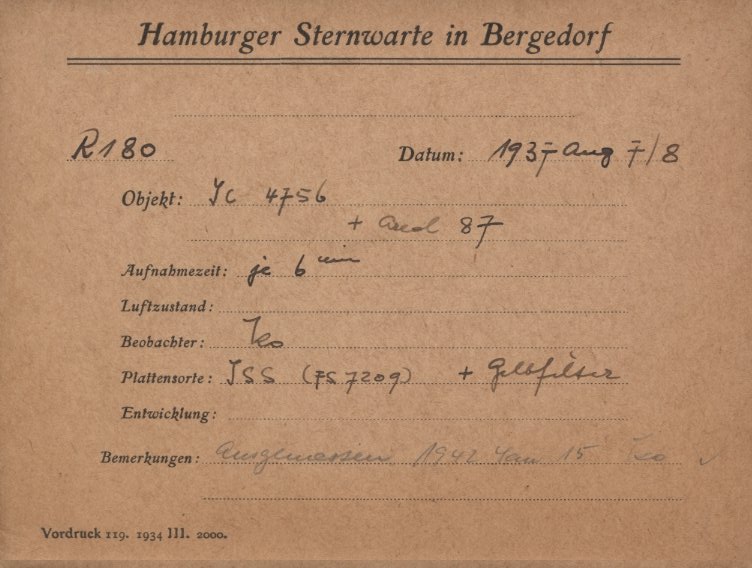 Hamburger Sternwarte in Bergedorf
R180 Datum: 1937 Aug 7/8
Objekt: JC 4756
+ 87
Aufnahmezeit: je 6 min
Luftzustand:
Beobachter:
Plattensorte: JSS (FS 7209) + Gelbfilter
Entwicklung:
Bemerkungen: Ausgemessen 1942 Jan 15
Vordruck 119. 1934 III. 2000.